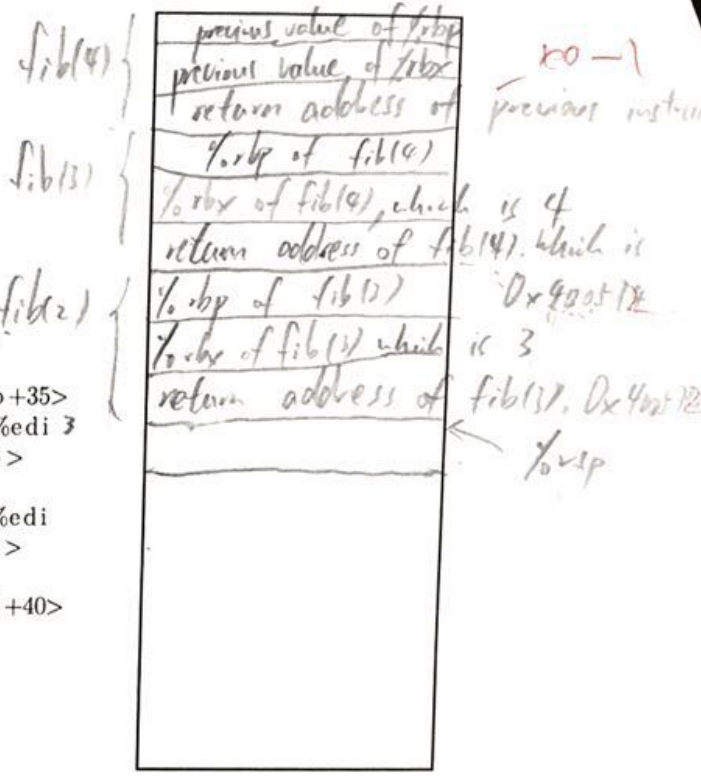 previous value of %rbp
fib(4)
previous value of %rbx
return address of previous
%rbp of fib(4)
fib(3)
%rbx of fib(4), which is 4
return address of fib(4). which is
0x400512
fib(2)
%rbp of fib(3)
%rbx of fib(3) which is 3
return address of fib(3).
%rsp
+35>
%edi 3
>
%edi
>
+40>